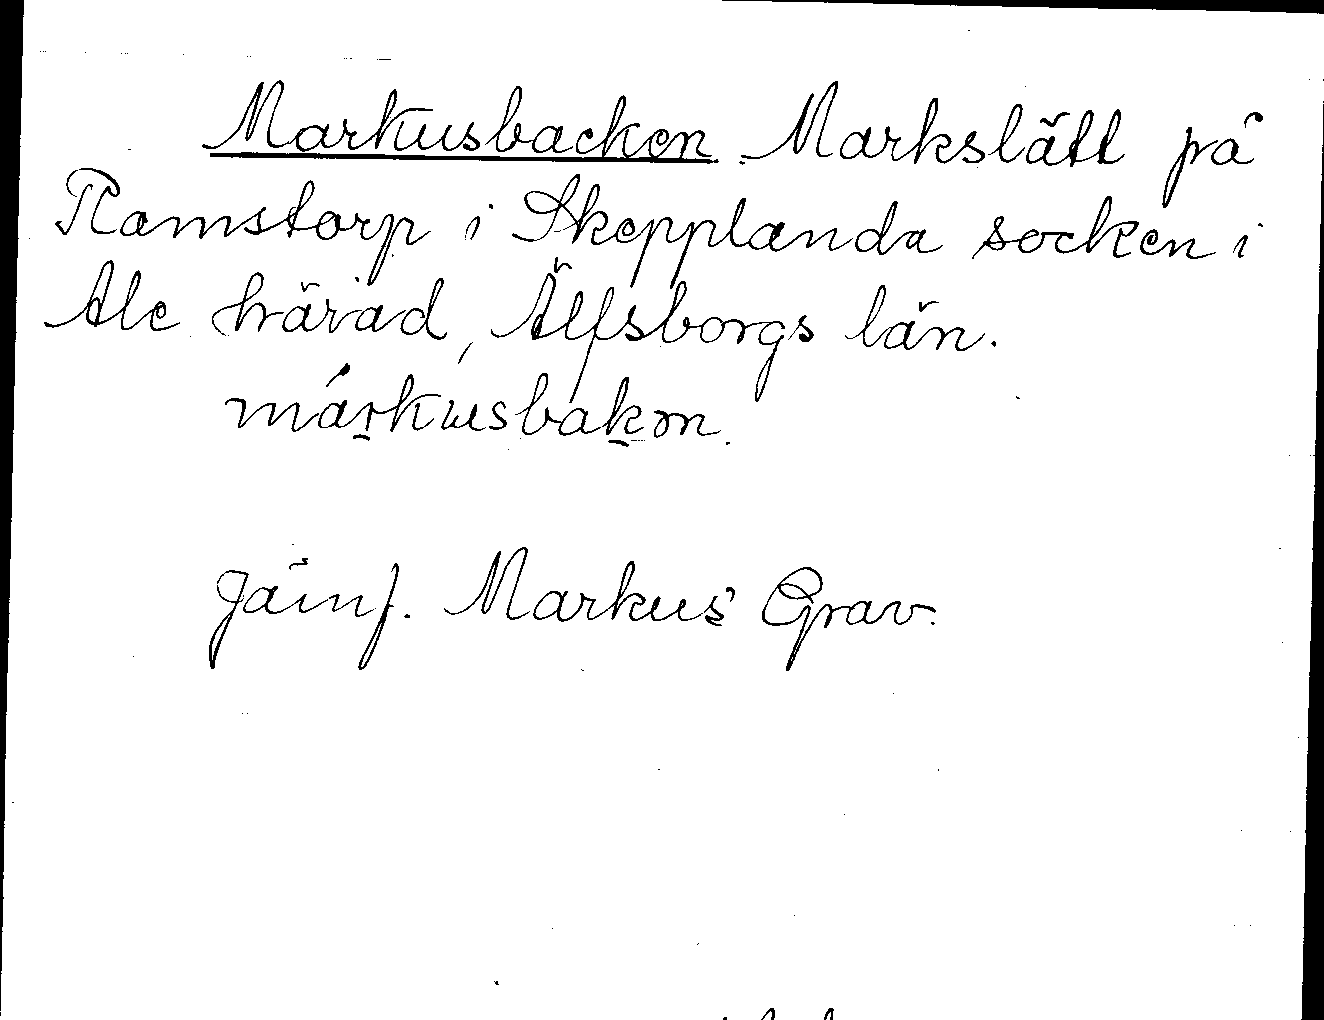 Markusbacken. Markslätt på
Ramstorp i Skepplanda socken i
Ale härad, Älfsborgs län.
márkusbakon.
Jämf. Markus' Grav.